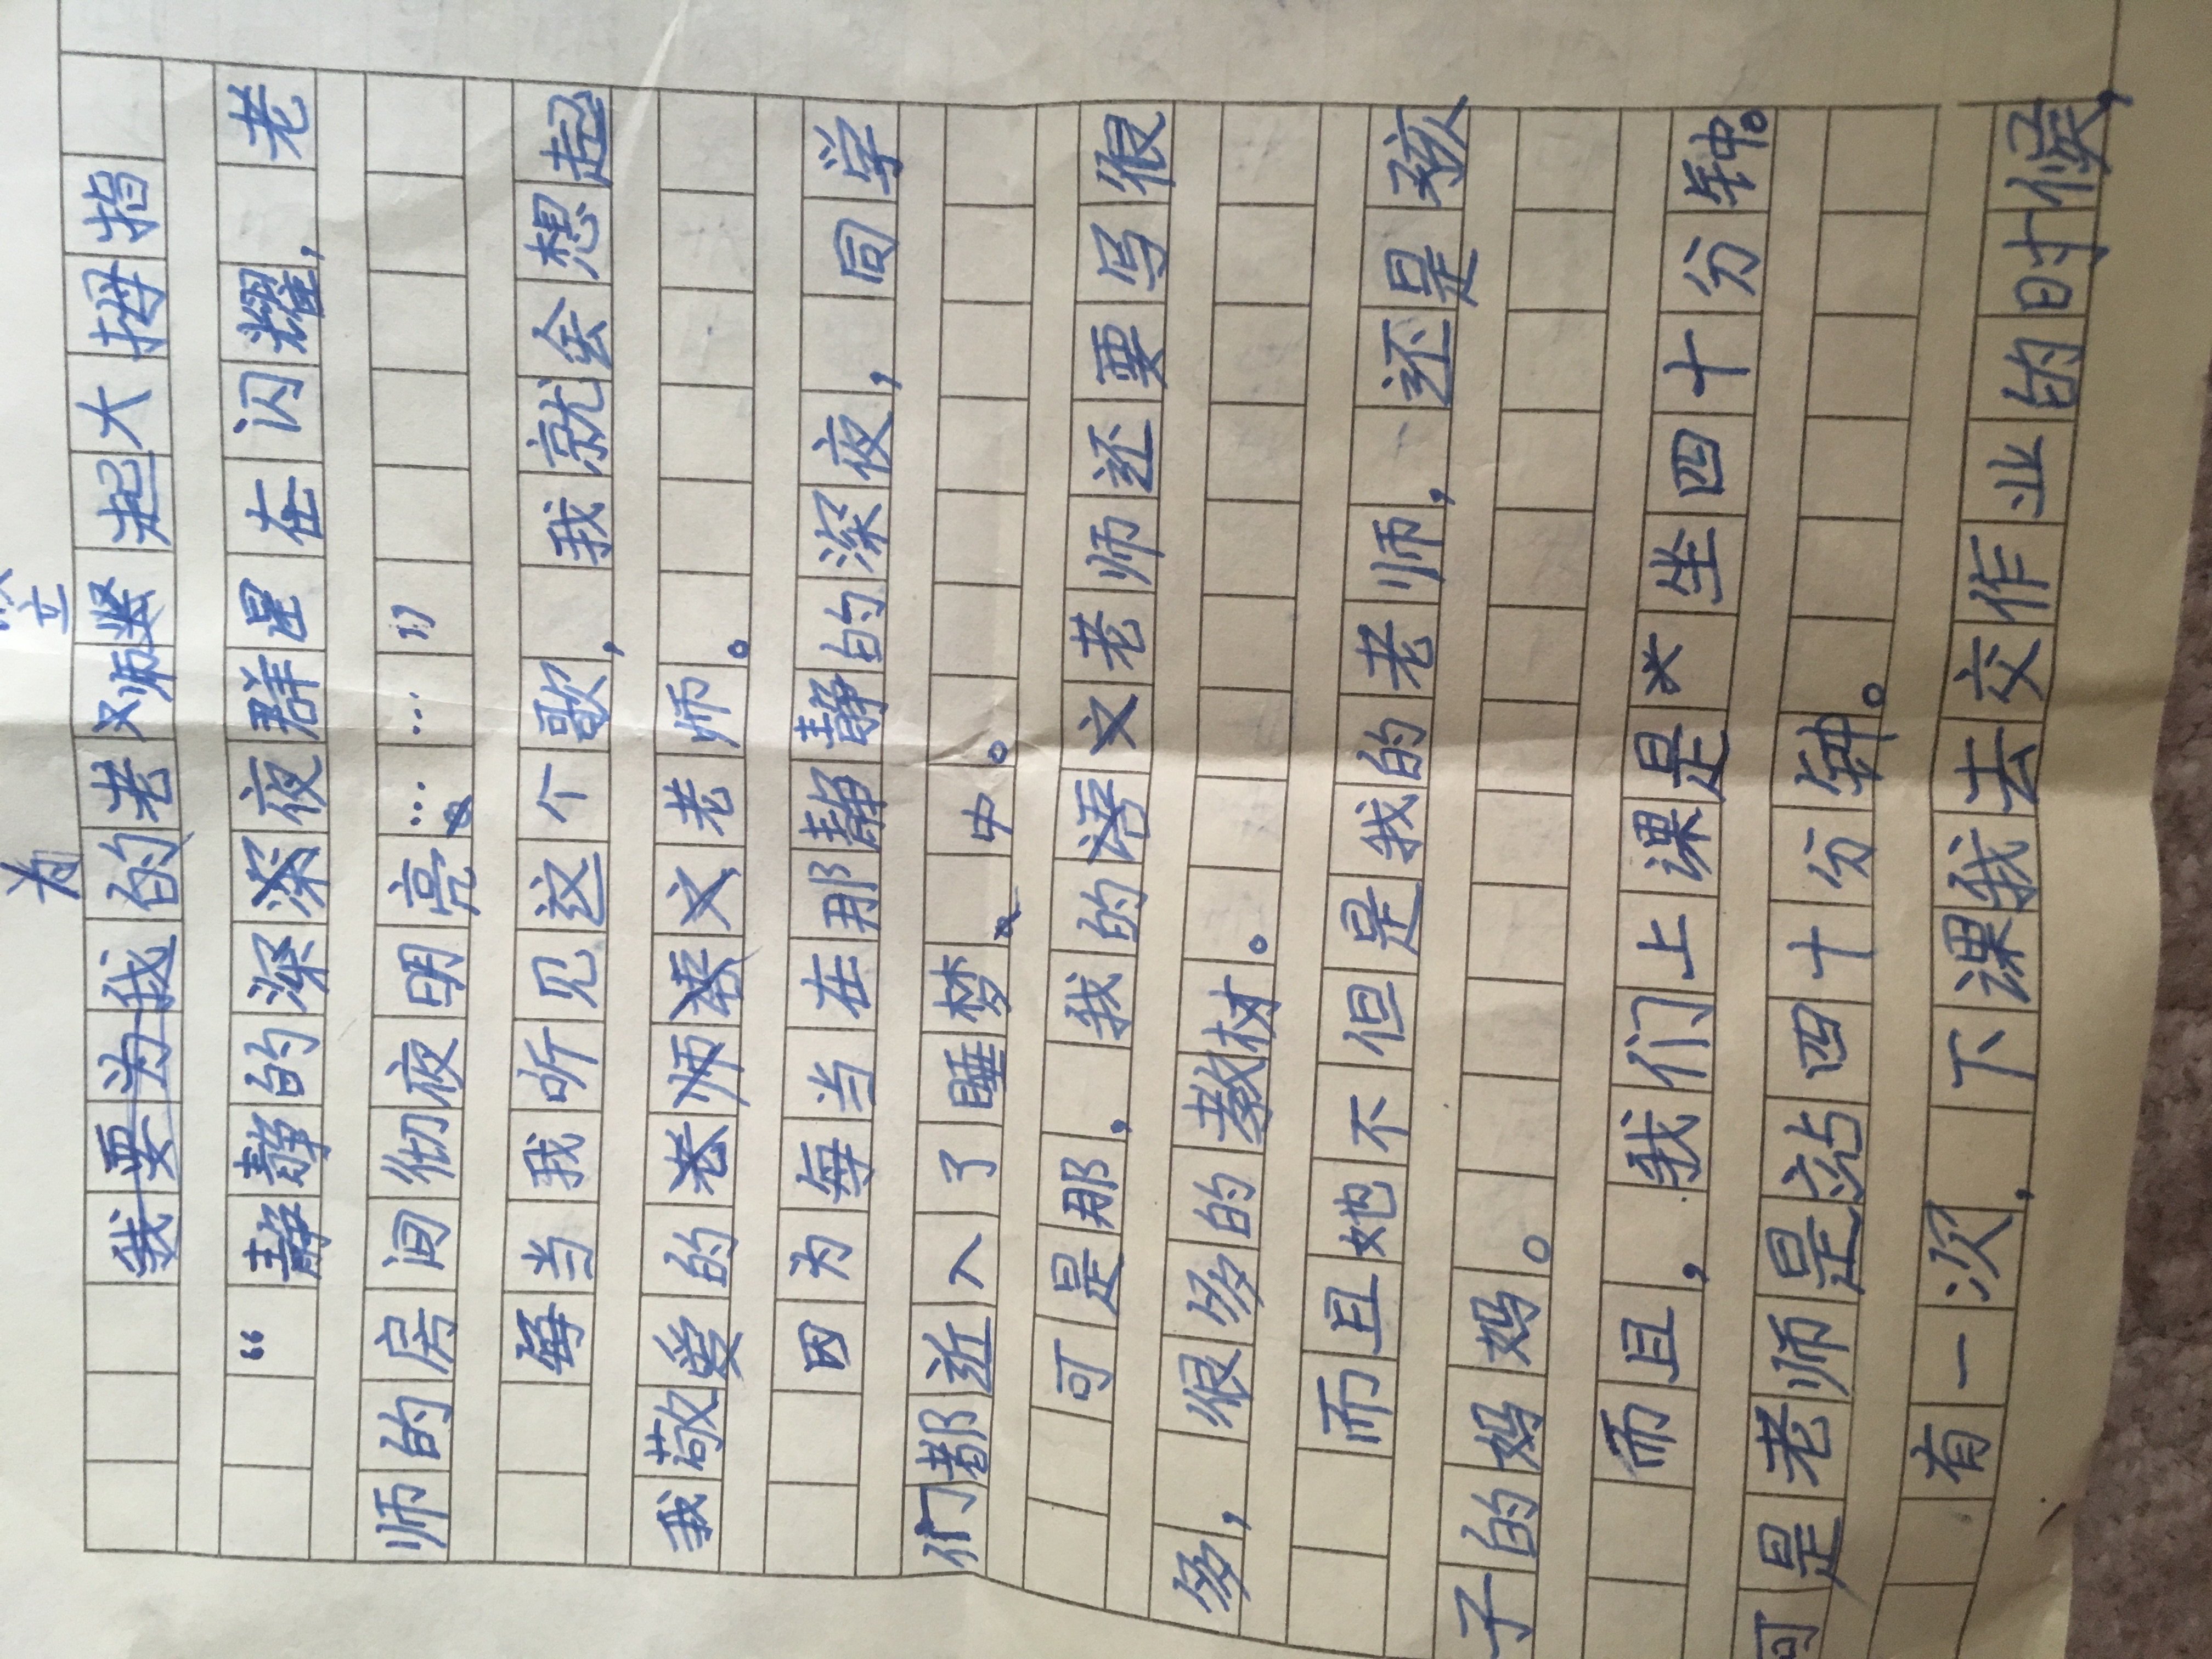 为我的老师竖起大拇指
“静静的深夜群星在闪耀，老
师的房间彻夜明亮……”
每当我听见这个歌，我就会想起
我敬爱的老师。
因为每当在那静静的深夜，同学
们都近入了睡梦中。
可是那，我的语文老师还要写很
多，很多的教材。
而且她不但是我的老师，还是孩
子的妈妈。
而且，我们上课是坐四十分钟。
可是老师是站四十分钟。
有一次，下课我去交作业的时候，